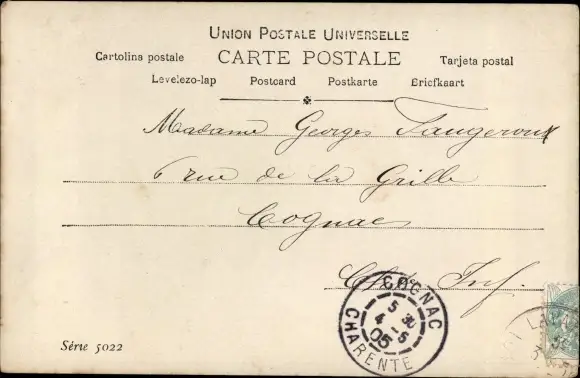 UNION POSTALE UNIVERSELLE
Cartolina postale CARTE POSTALE Tarjeta postal
Levelezo-lap Postcard Postkarte Briefkaart
Madame Georges Faugeroux
6 rue de la Grille
Cognac
Chte Inf.
COGNAC
5 30
4 - 5
05
CHARENTE
Série 5022